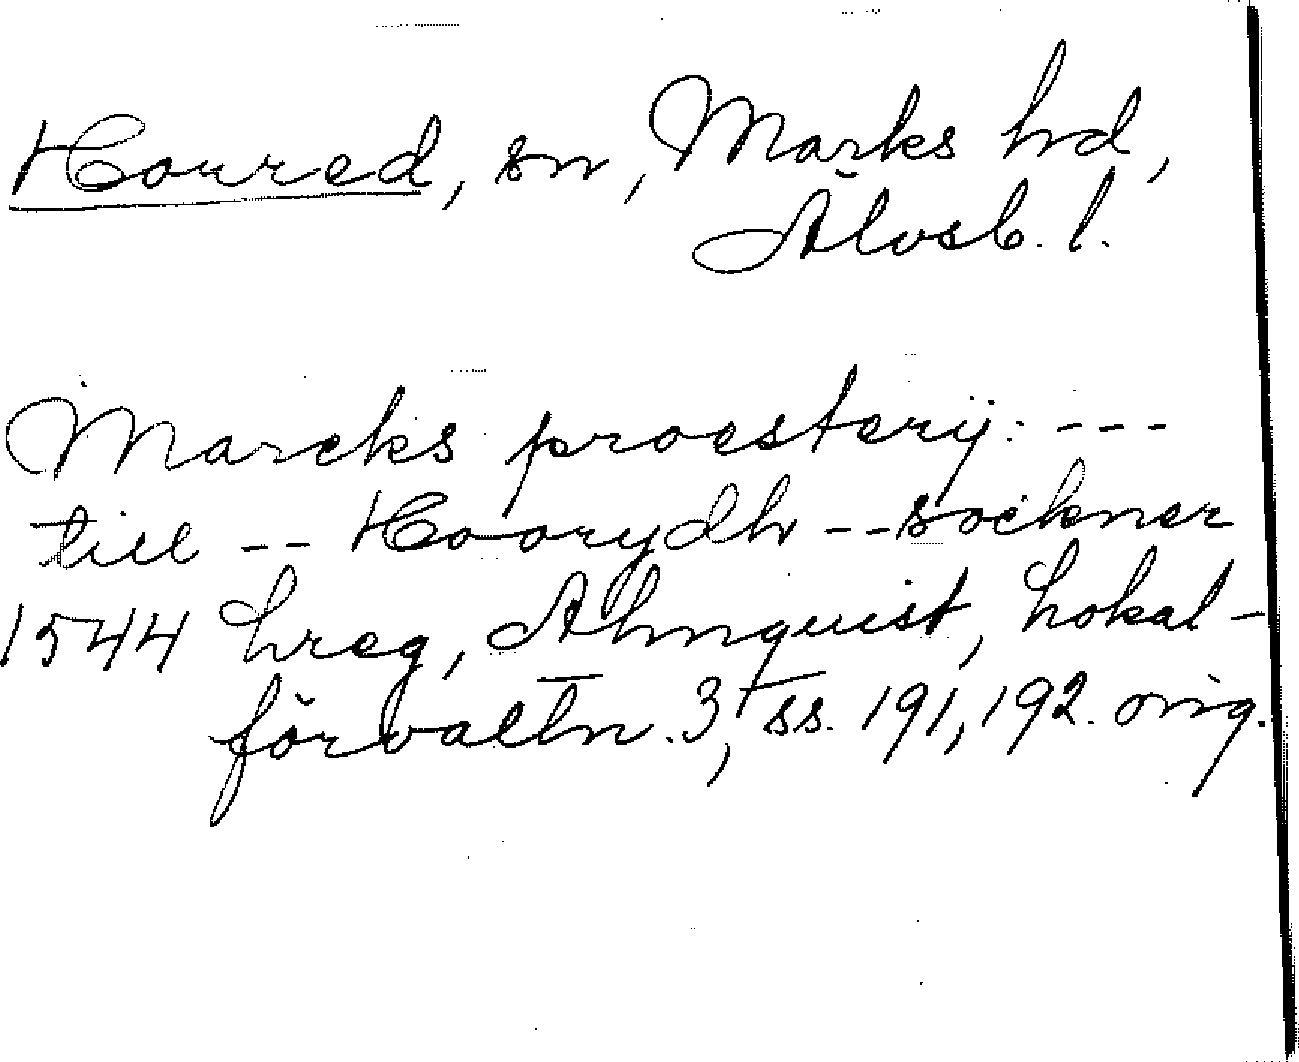 Hourred, sn, Marks hd,
Älvsb. l.
Marcks proestery: ---
till -- Hoorydh -- sockner
1544 Lreg, Almquist, Lokal-
förvaltn. 3, ss. 191, 192. orig.